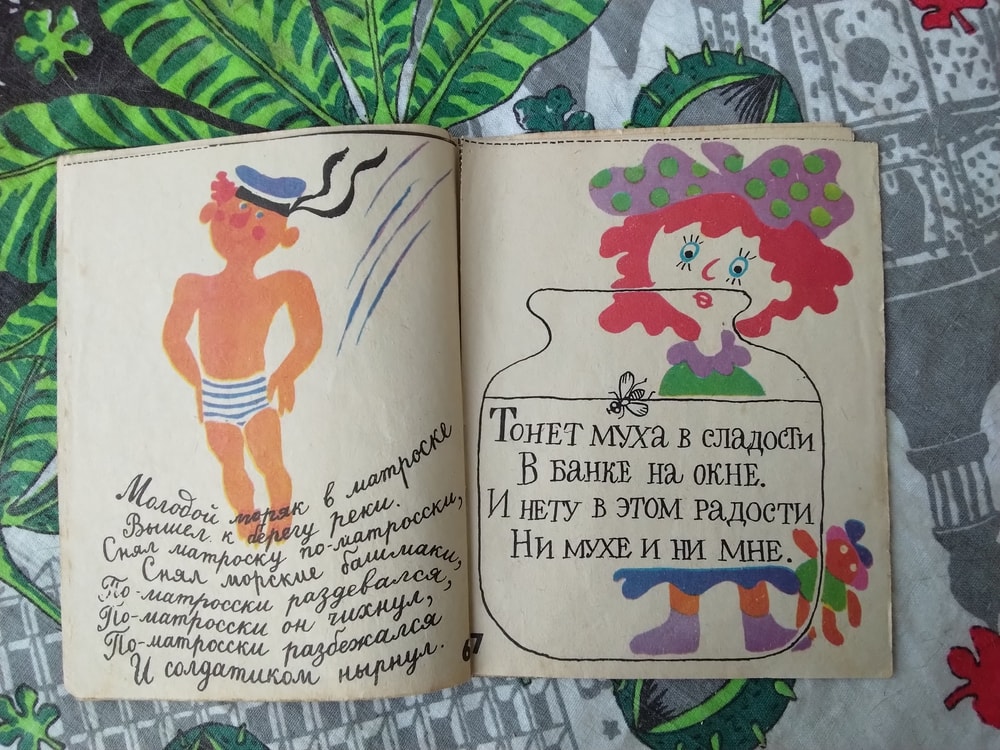 Молодой моряк в матроске
Вышел к берегу реки.
Снял матроску по-матросски,
Снял морские башмаки,
По-матросски раздевался,
По-матросски он чихнул,
По-матросски разбежался
И солдатиком нырнул.
67
Тонет муха в сладости
В банке на окне.
И нету в этом радости
Ни мухе и ни мне.